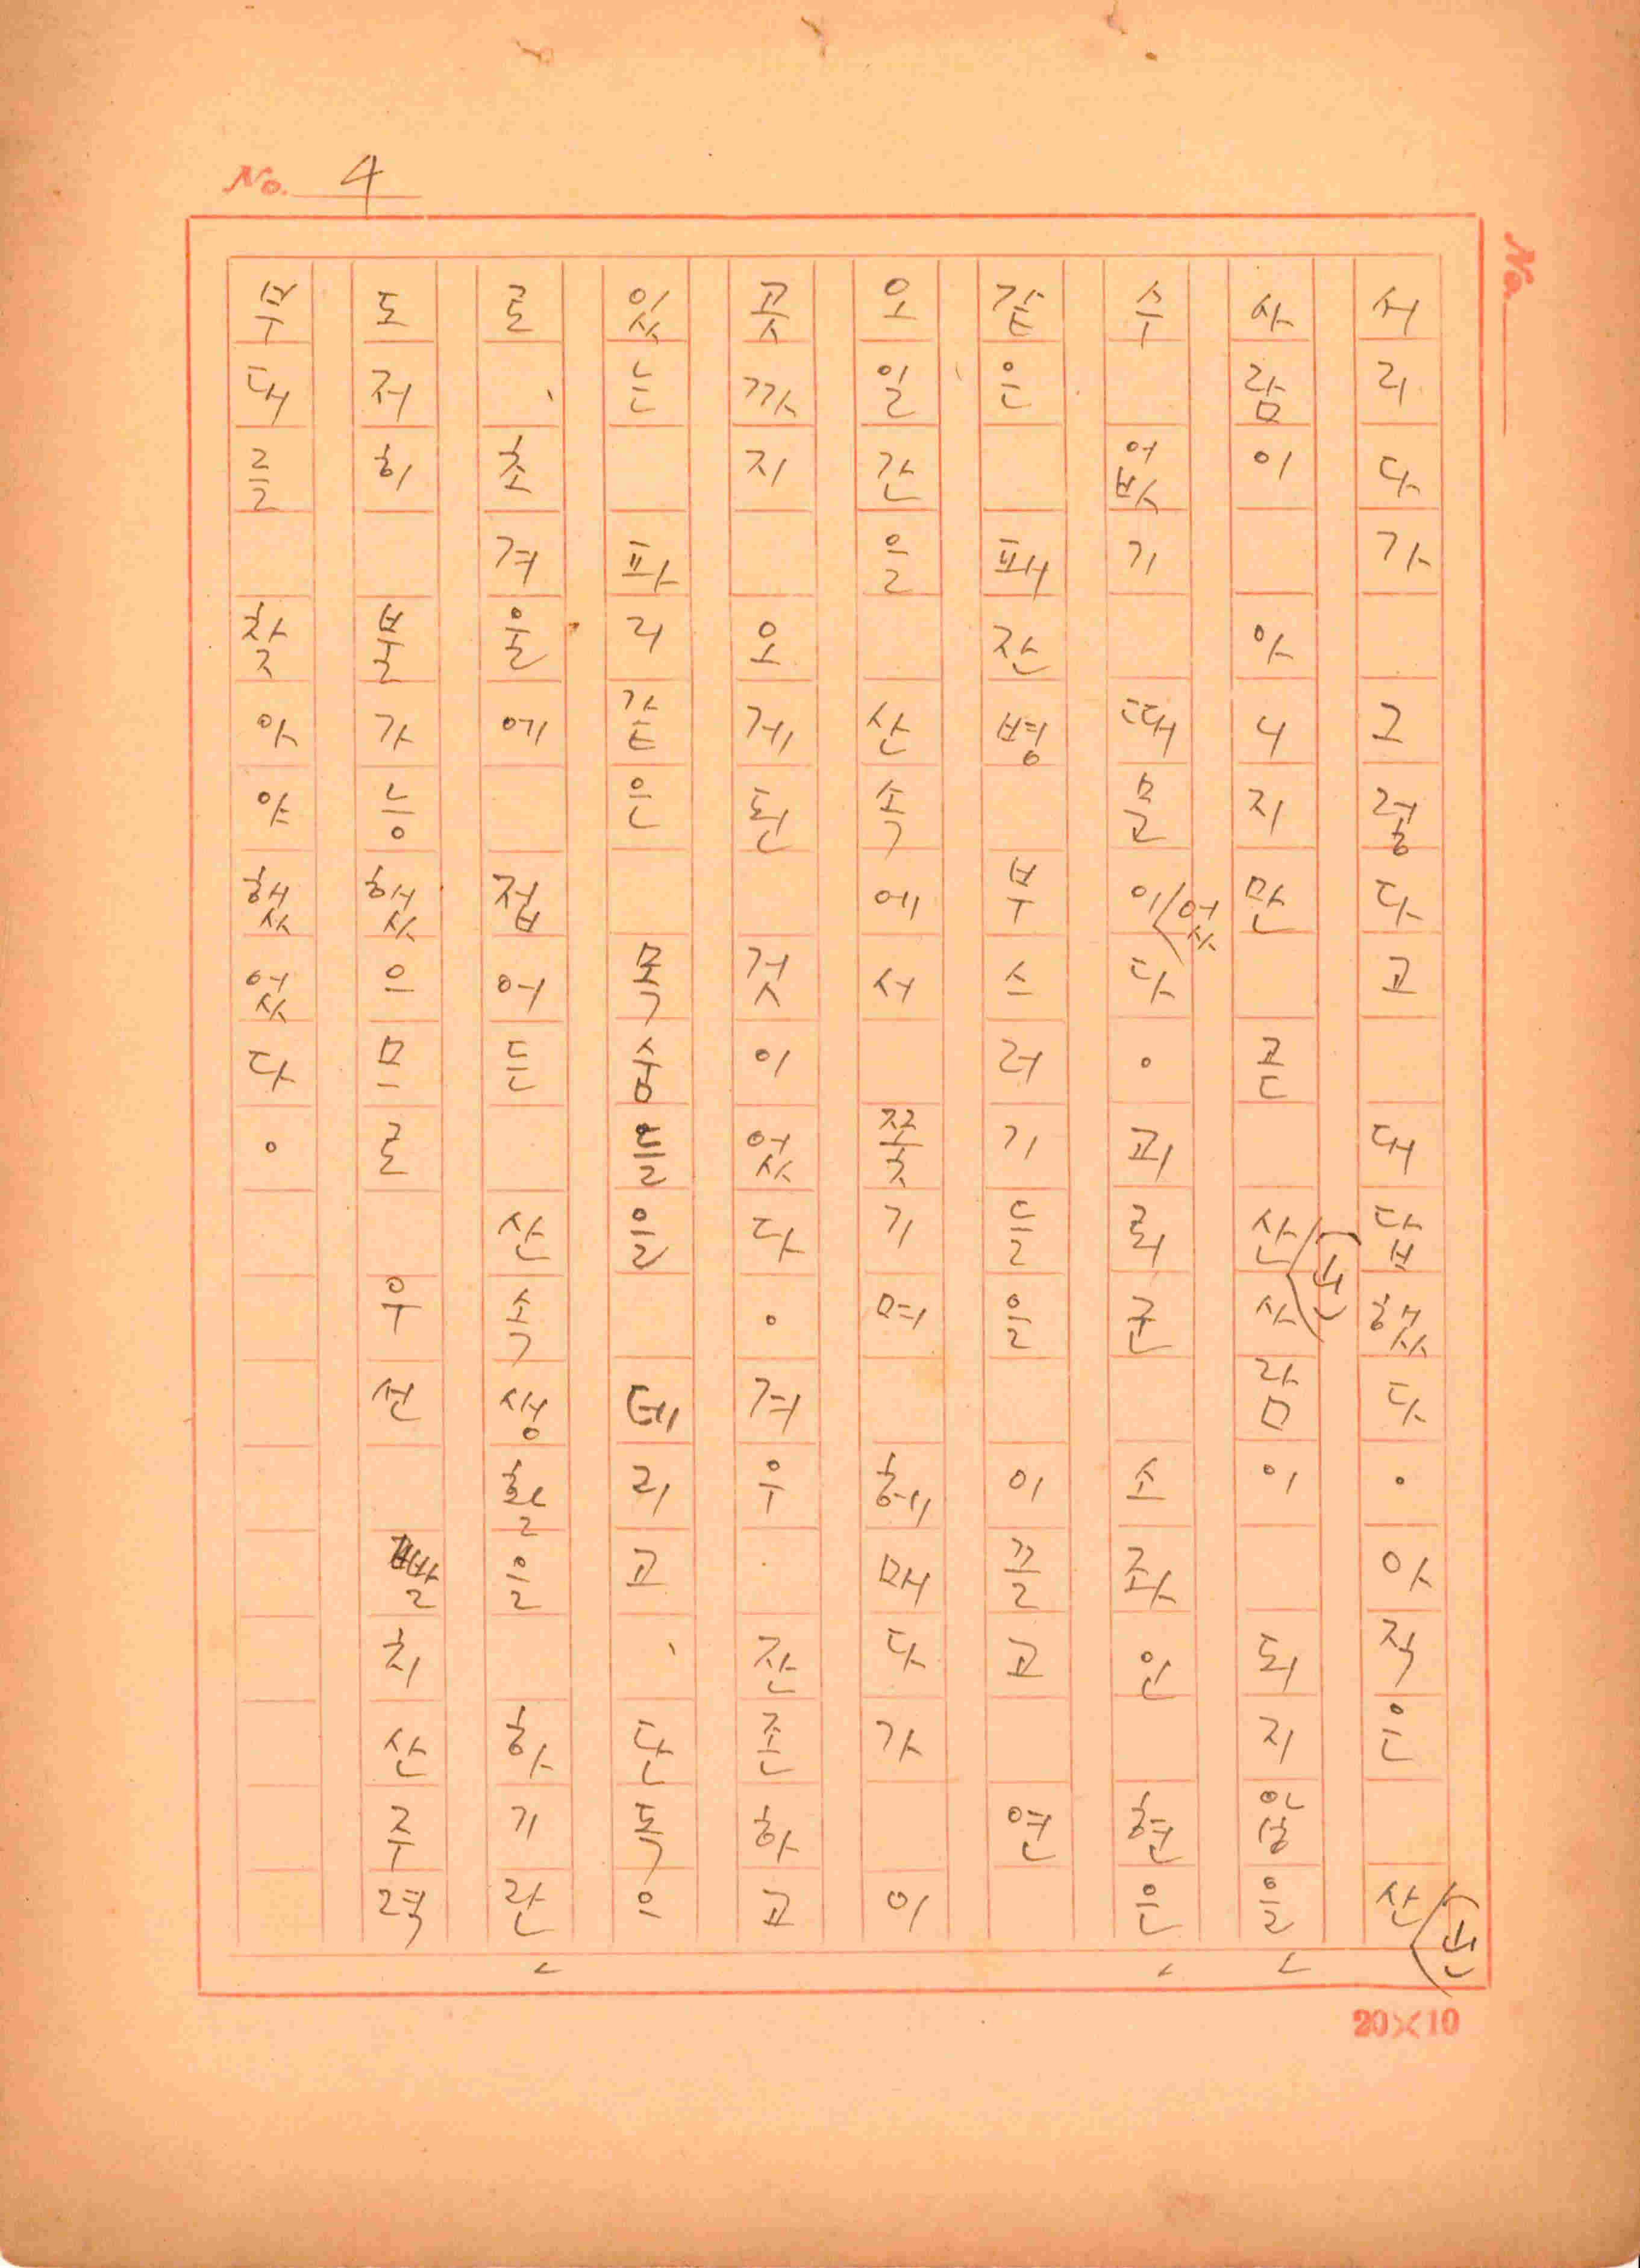 No. 4
No.
서리다가 그렇다고 대답했다. 아직은 산(山)
사람이 아니지만 곧 산(山)사람이 되지 않을
수 없기 때문이었다. 괴뢰군 소좌인 현은
같은 패잔병 부스러기들을 이끌고 연
오일간을 산속에서 쫓기며 헤매다가 이
곳까지 오게된 것이었다. 겨우 잔존하고
있는 파리같은 목숨들을 데리고, 단독으
로, 초겨울에 접어든 산속생활을 하기란
도저히 불가능했으므로 우선 빨치산주력
부대를 찾아야했었다.
20×10